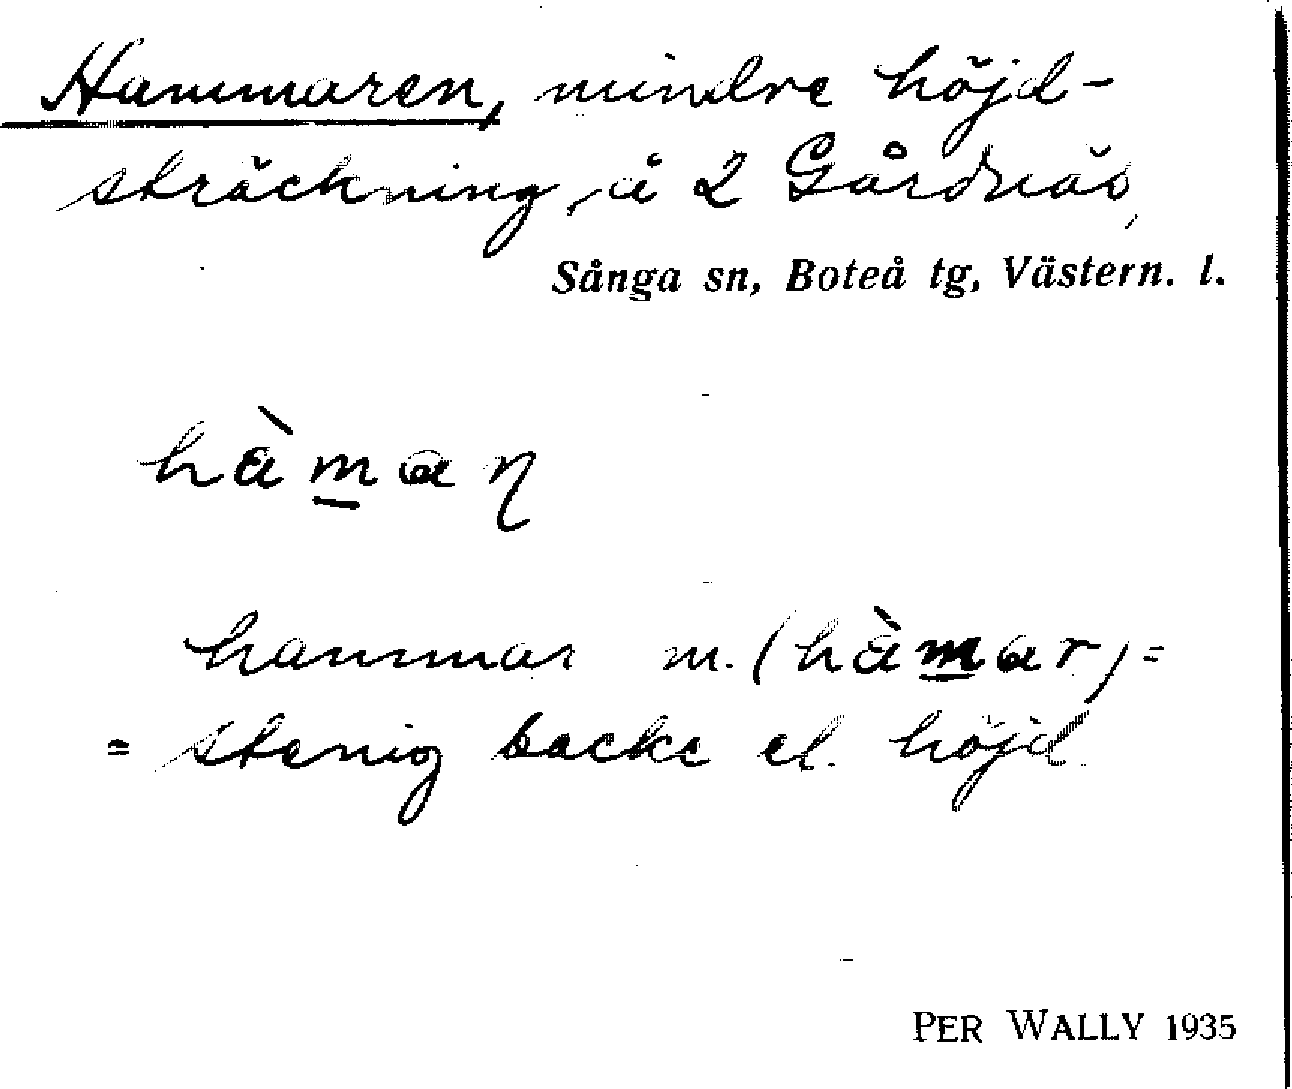 Hammaren, mindre höjd-
sträckning, å 2 Gårdnäs,
Sånga sn, Boteå tg, Västern. l.
hàm̲aɳ
hammar m. (hàm̲ar) =
= stenig backe el. höjd.
PER WALLY 1935